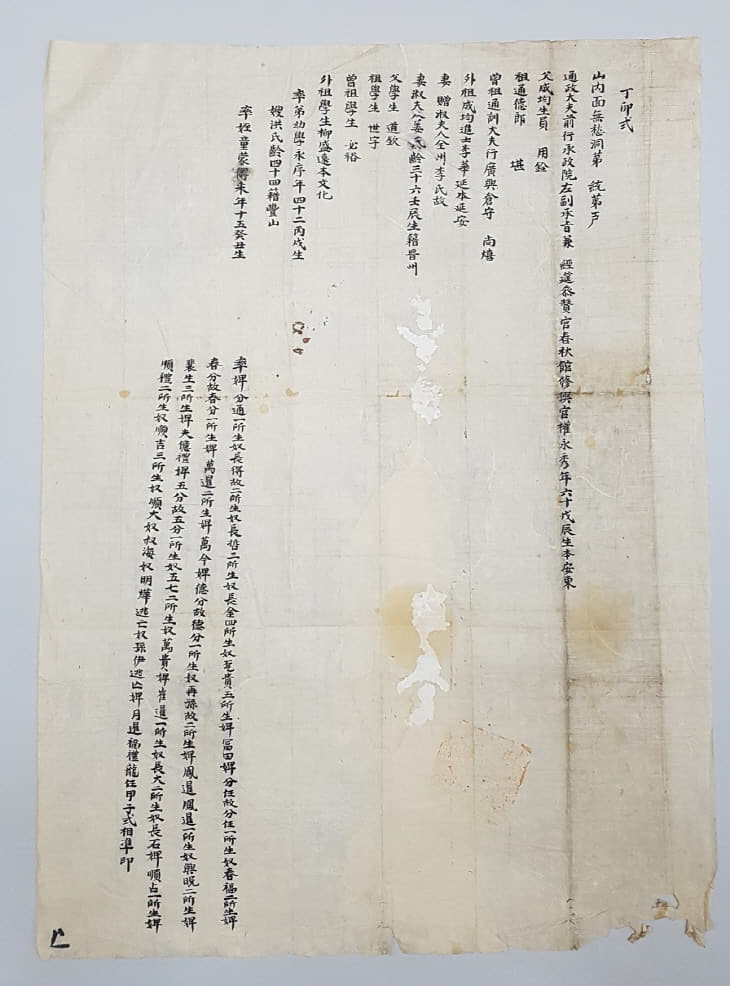 丁卯式
山內面無愁洞第 統第 戶
通政大夫前行承政院左副承旨兼 經筵參贊官春秋館修撰官權永秀年六十戊辰生本安東
父成均生員 用銓
祖通德郎 堪
曾祖通訓大夫行廣興倉守 尚熺
外祖成均進士李華延本延安
妻 贈淑夫人全州李氏故
妻淑夫人姜氏齡三十六壬辰生籍晋州
父學生 道欽
祖學生 世字
曾祖學生 必裕
外祖學生柳盛遠本文化
率弟幼學永序年四十二丙戌生
嫂洪氏齡四十四籍豐山
率姪童蒙 來年十五癸丑生
率婢分通一所生奴長得故二所生奴長哲二所生奴長金四所生奴芝貴五所生婢富田婢分任故分任一所生奴春福二所生婢
春分故春分一所生婢萬暹二所生婢萬今婢德分故德分一所生奴再孫故二所生婢鳳暹鳳暹一所生奴興晚二所生婢
裴生三所生婢夫億禮婢五分故五分一所生奴五七二所生奴萬貴婢崔暹一所生奴長大二所生奴長石婢順占一所生婢
順禮二所生奴順吉三所生奴順大奴叔海奴明燁逃亡奴孫伊逃亡婢月暹福禮龍任甲子式相準印